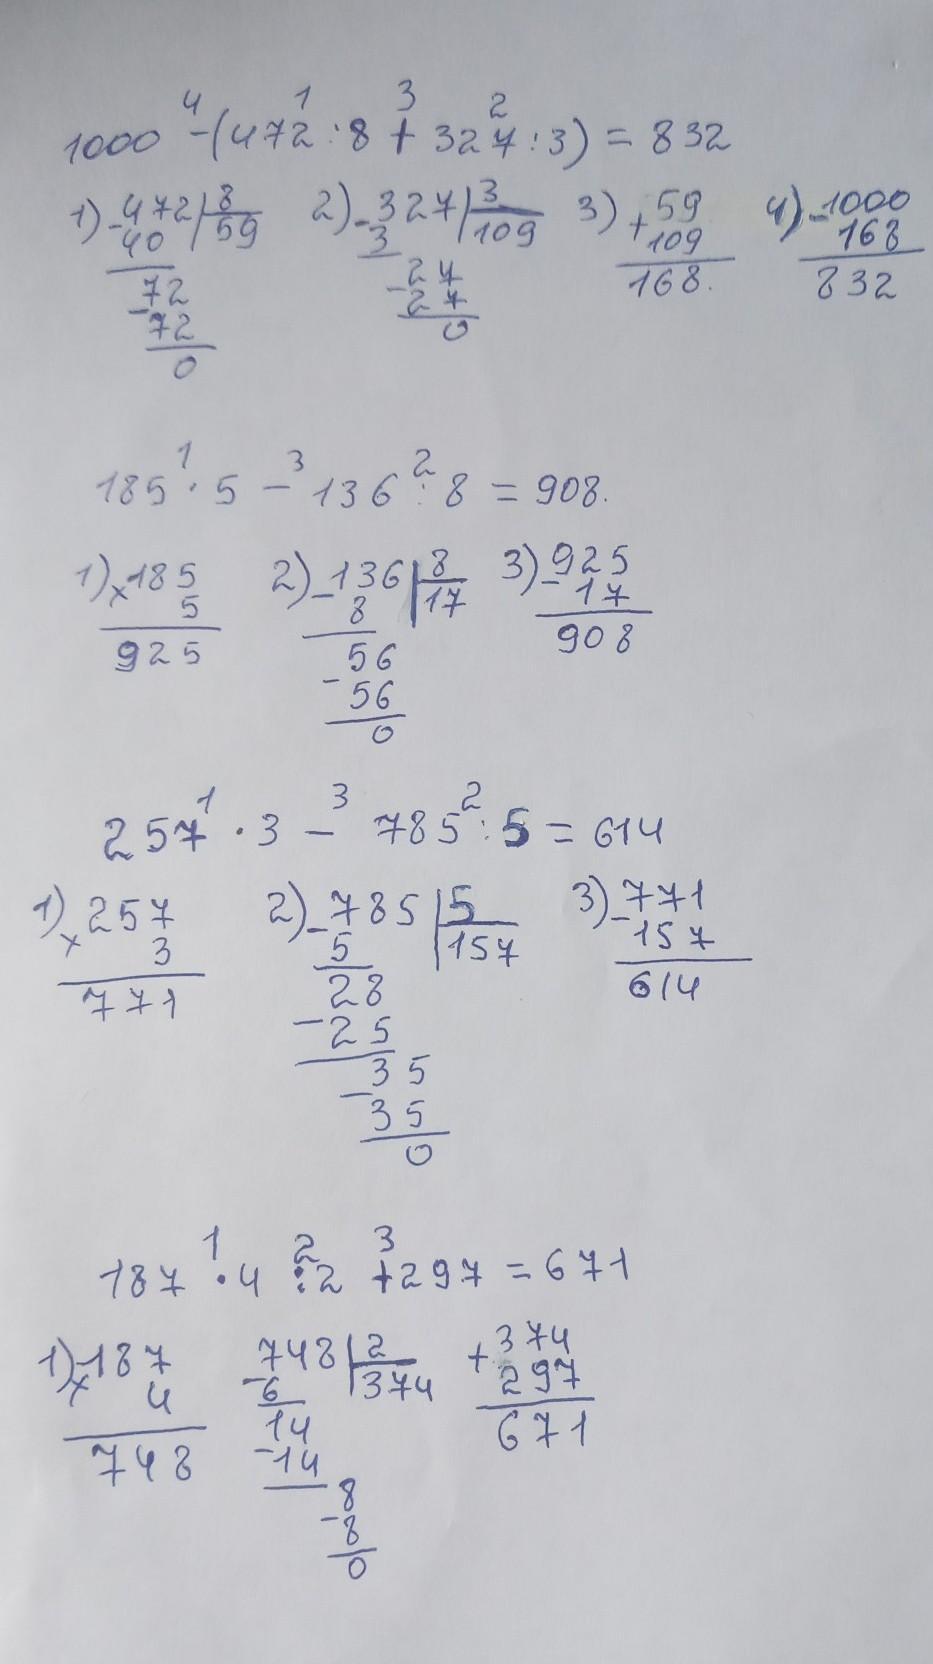 1000 - (472 : 8 + 327 : 3) = 832
4 1 3 2
1) - 472 | 8 2) - 327 | 3 3) + 59 4) - 1000
40 59 3 109 109 168
72 - 27 168. 832
- 72 27
0 0
1 3 2
185 · 5 - 136 : 8 = 908.
1) x 185 2) - 136 | 8 3) - 925
5 8 17 17
925 56 908
- 56
0
1 3 2
257 · 3 - 785 : 5 = 614
1) x 257 2) - 785 | 5 3) - 771
3 5 157 157
771 28 614
- 25
- 35
35
0
1 2 3
187 · 4 : 2 + 297 = 671
1) x 187 - 748 | 2 + 374
4 6 374 297
748 14 671
- 14
8
- 8
0